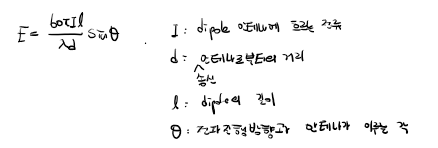 E = 60πIl/λd sinθ
I : dipole 안테나에 흐르는 전류
d : 송신 안테나로부터의 거리
l : dipole의 길이
θ : 전파진행방향과 안테나가 이루는 각